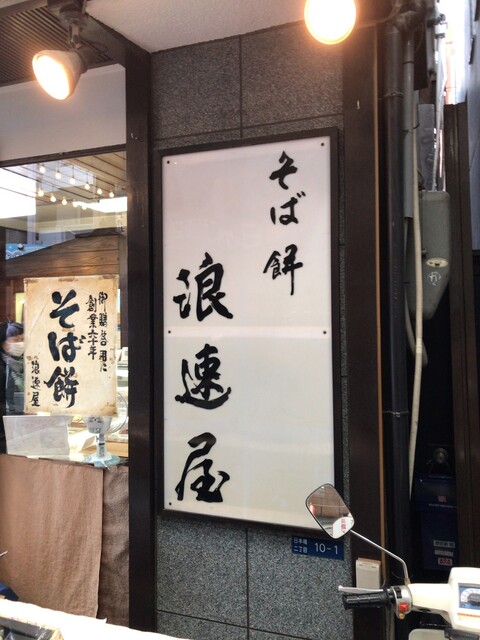 そば餅
浪速屋
御贈答用に
創業六十年
そば餅
浪速屋
日本橋
二丁目
10-1